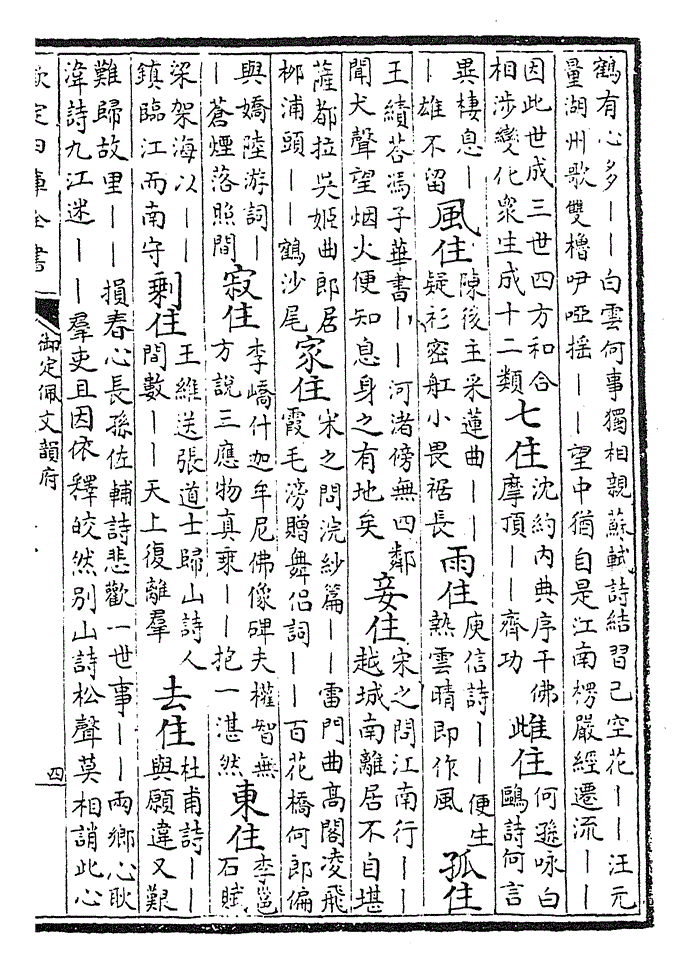 鶴有心多——白雲何事獨相親蘇軾詩結習已空花——汪元
量湖州歌雙櫓咿啞揺——望中猶自是江南楞嚴經遷流——
因此世成三世四方和合
相涉變化衆生成十二類
七住
沈約内典序千佛
摩頂——齊功
雌住
何遜咏白
鷗詩何言
異棲息—
—雄不留
風住
陳後主采蓮曲——
疑衫密舡小畏裾長
雨住
庾信詩——便生
熱雲晴即作風
孤住
王績荅馮子華書——河渚傍無四鄰
聞犬聲望烟火便知息身之有地矣
妾住
宋之問江南行——
越城南離居不自堪
薩都拉吳姬曲郎居
栁浦頭——鶴沙尾
家住
宋之問浣紗篇——雷門曲髙閣凌飛
霞毛滂贈舞侣詞——百花橋何郎偏
與嬌陸游詞—
—蒼煙落照間
寂住
李嶠什迦牟尼佛像碑夫權智無
方説三應物真乘——抱一湛然
東住
李邕
石賦
梁架海以——
鎮臨江而南守
剩住
王維送張道士歸山詩人
間數——天上復離羣
去住
杜甫詩——
與願違又艱
難歸故里——損春心長孫佐輔詩悲歡一世事——兩鄉心耿
湋詩九江迷——羣吏且因依釋皎然别山詩松聲莫相誚此心
欽定四庫全書
御定佩文韻府
四